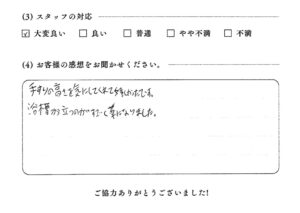 (3) スタッフの対応
☑ 大変良い □ 良い □ 普通 □ やや不満 □ 不満
(4) お客様の感想をお聞かせください。
手すりの高さを気にしてくれて嬉しかったです。
浴槽から立つのがすごく楽になりました。
ご協力ありがとうございました!